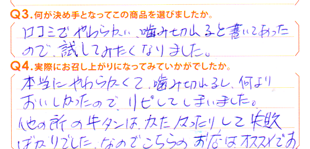 Q3.何が決め手となってこの商品を選びましたか。
口コミでやわらかい、噛み切れると書いてあった
ので、試してみたくなりました。
Q4.実際にお召し上がりになってみていかがでしたか。
本当にやわらかくて、噛み切れるし、何より
おいしかったので、リピしてしまいました。
他の所の牛タンは、かたかったりして失敗
ばかりでした。なのでこちらのお店はオススメでお